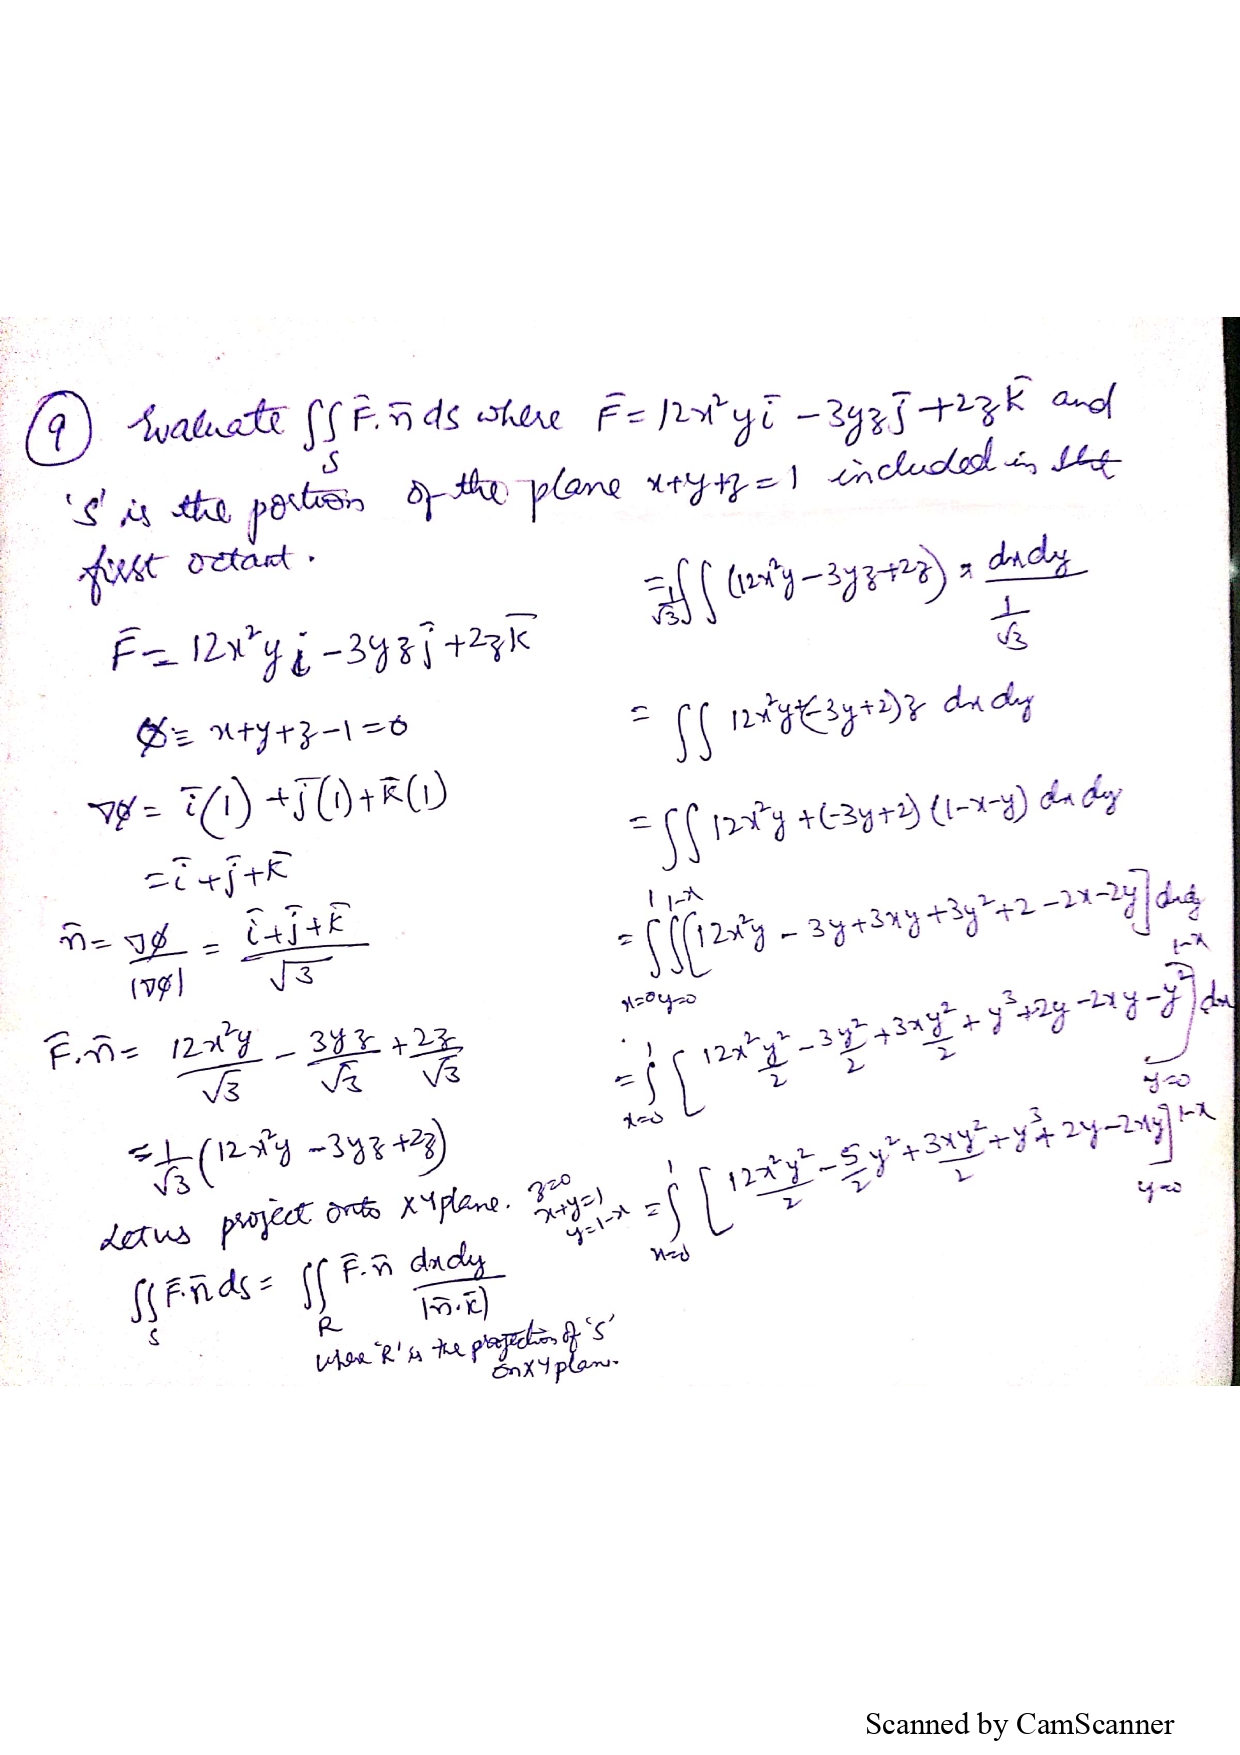 9 Evaluate ∬_S F̄.n̄ ds where F̄ = 12x²y ī − 3yz j̄ + 2z k̄ and
'S' is the portion of the plane x+y+z=1 included in the
first octant.
F̄ = 12x²y i − 3yz j̄ + 2z k̄
φ ≡ x+y+z−1=0
∇φ = ī(1) + j̄(1) + k̄(1)
= ī + j̄ + k̄
n̄ = ∇φ/|∇φ| = (ī+j̄+k̄)/√3
F̄.n̄ = 12x²y/√3 − 3yz/√3 + 2z/√3
= 1/√3 (12x²y − 3yz + 2z)
Let us project onto xy plane. z=0
x+y=1
y=1−x
∬_S F̄.n̄ ds = ∬_R F̄.n̄ dxdy/|n̄.k̄|
where 'R' is the projection of 'S'
on xy plane.
= 1/√3 ∬ (12x²y − 3yz + 2z) × dxdy/(1/√3)
= ∬ 12x²y + (−3y+2)z dxdy
= ∬ 12x²y + (−3y+2)(1−x−y) dxdy
= ∫_{x=0}^{1} ∫_{y=0}^{1−x} ∫[12x²y − 3y + 3xy + 3y² + 2 − 2x − 2y] dxdy
= ∫_{x=0}^{1} [12x²y²/2 − 3y²/2 + 3xy²/2 + y³ + 2y − 2xy − y²]_{y=0}^{1−x} dx
= ∫_{x=0}^{1} [12x²y²/2 − 5/2 y² + 3xy²/2 + y³ + 2y − 2xy]_{y=0}^{1−x}
Scanned by CamScanner